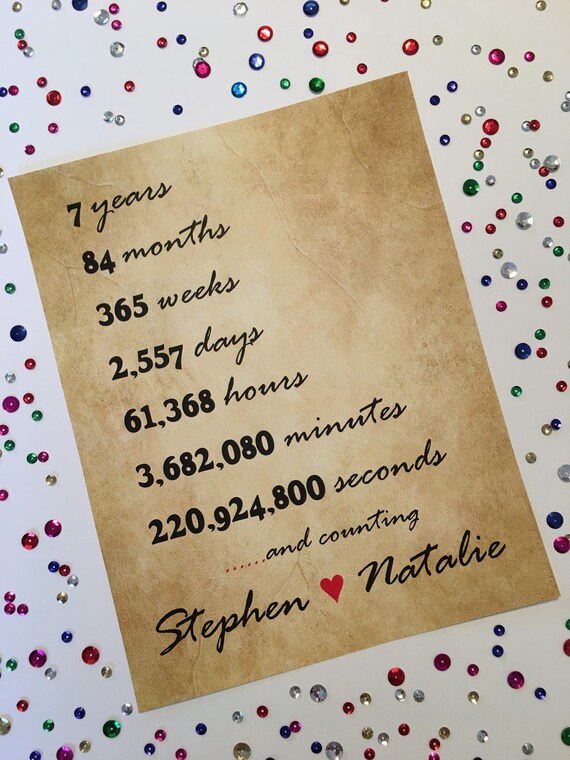 7 years
84 months
365 weeks
2,557 days
61,368 hours
3,682,080 minutes
220,924,800 seconds
......and counting
Stephen ♥ Natalie